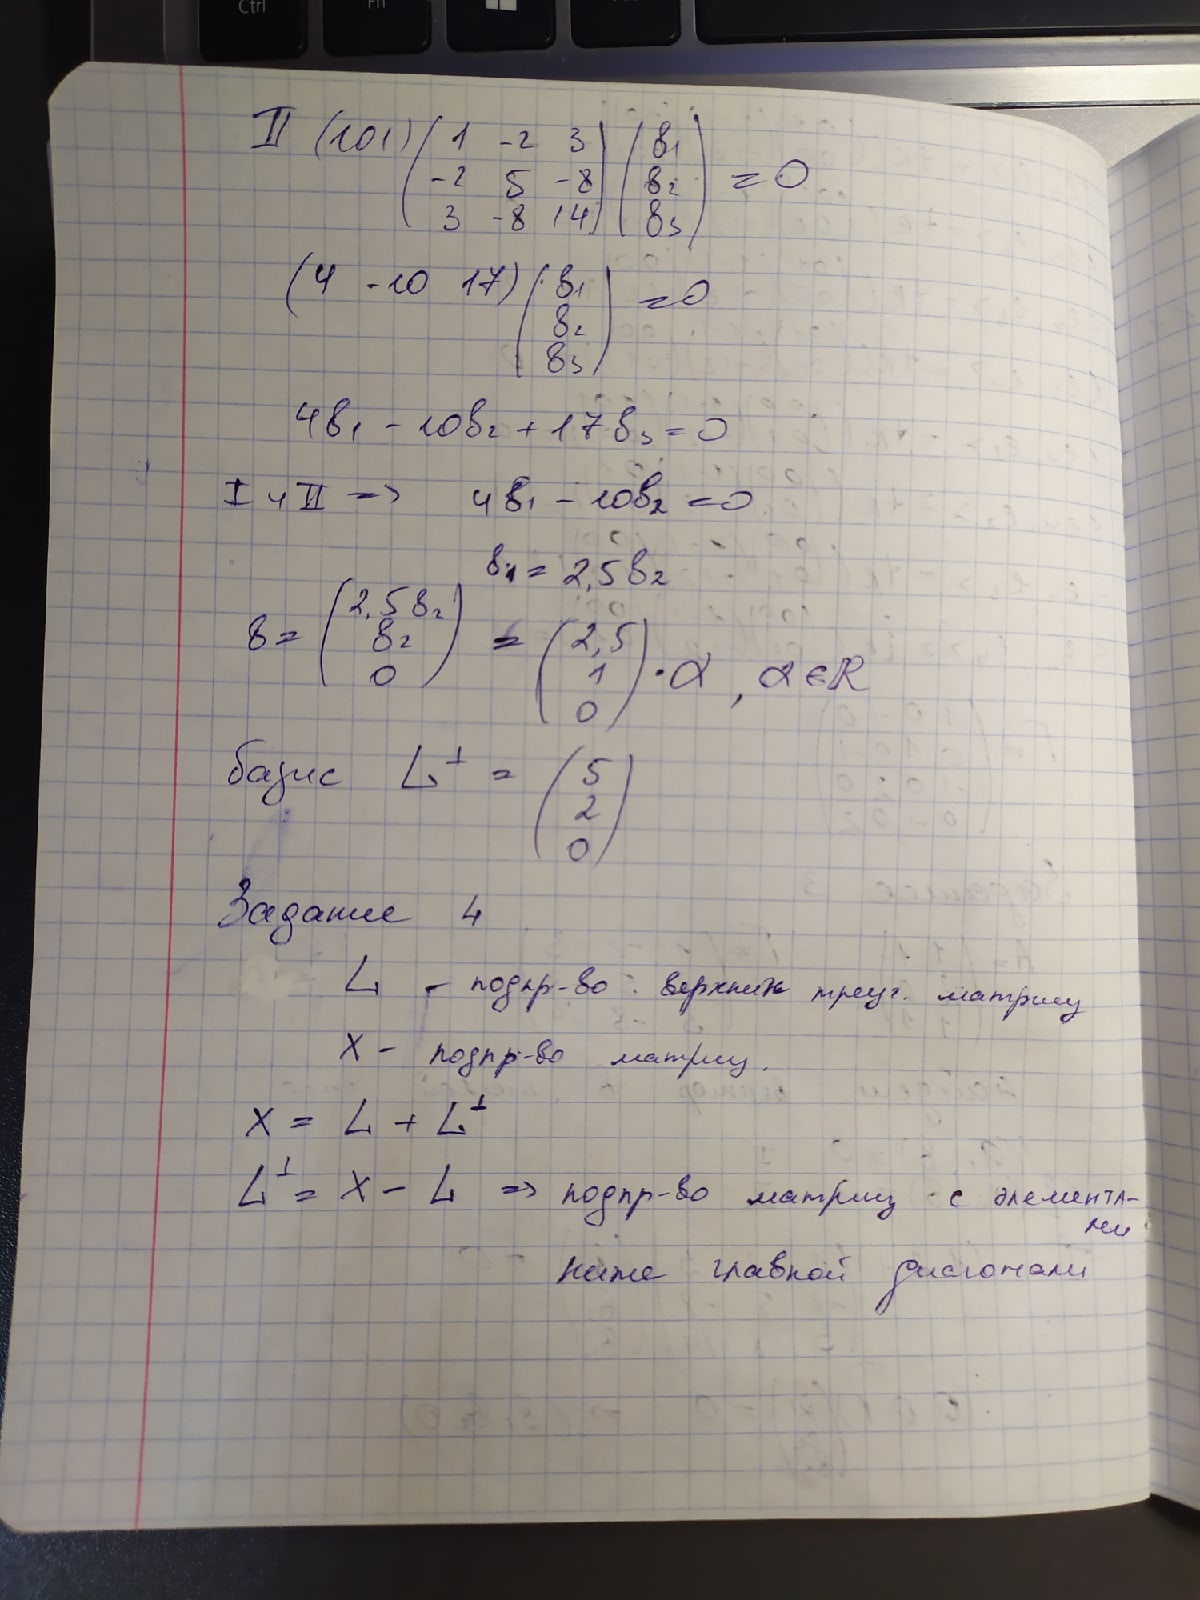 Ctrl
Fn
II (101) ( 1 -2 3 ) ( b₁ )
( -2 5 -8 ) ( b₂ ) = 0
( 3 -8 14 ) ( b₃ )
(4 -10 17) ( b₁ ) = 0
( b₂ )
( b₃ )
4b₁ - 10b₂ + 17b₃ = 0
I и II => 4b₁ - 10b₂ = 0
b₁ = 2,5b₂
b = ( 2,5b₂ ) = ( 2,5 )
( b₂ ) ( 1 ) · α , α ∈ R
( 0 ) ( 0 )
базис L^⊥ = ( 5 )
( 2 )
( 0 )
Задание 4
L - подпр-во верхних треуг. матриц
X - подпр-во матриц.
X = L + L^⊥
L^⊥ = X - L => подпр-во матриц с элемента-
ми
ниже главной диагонали